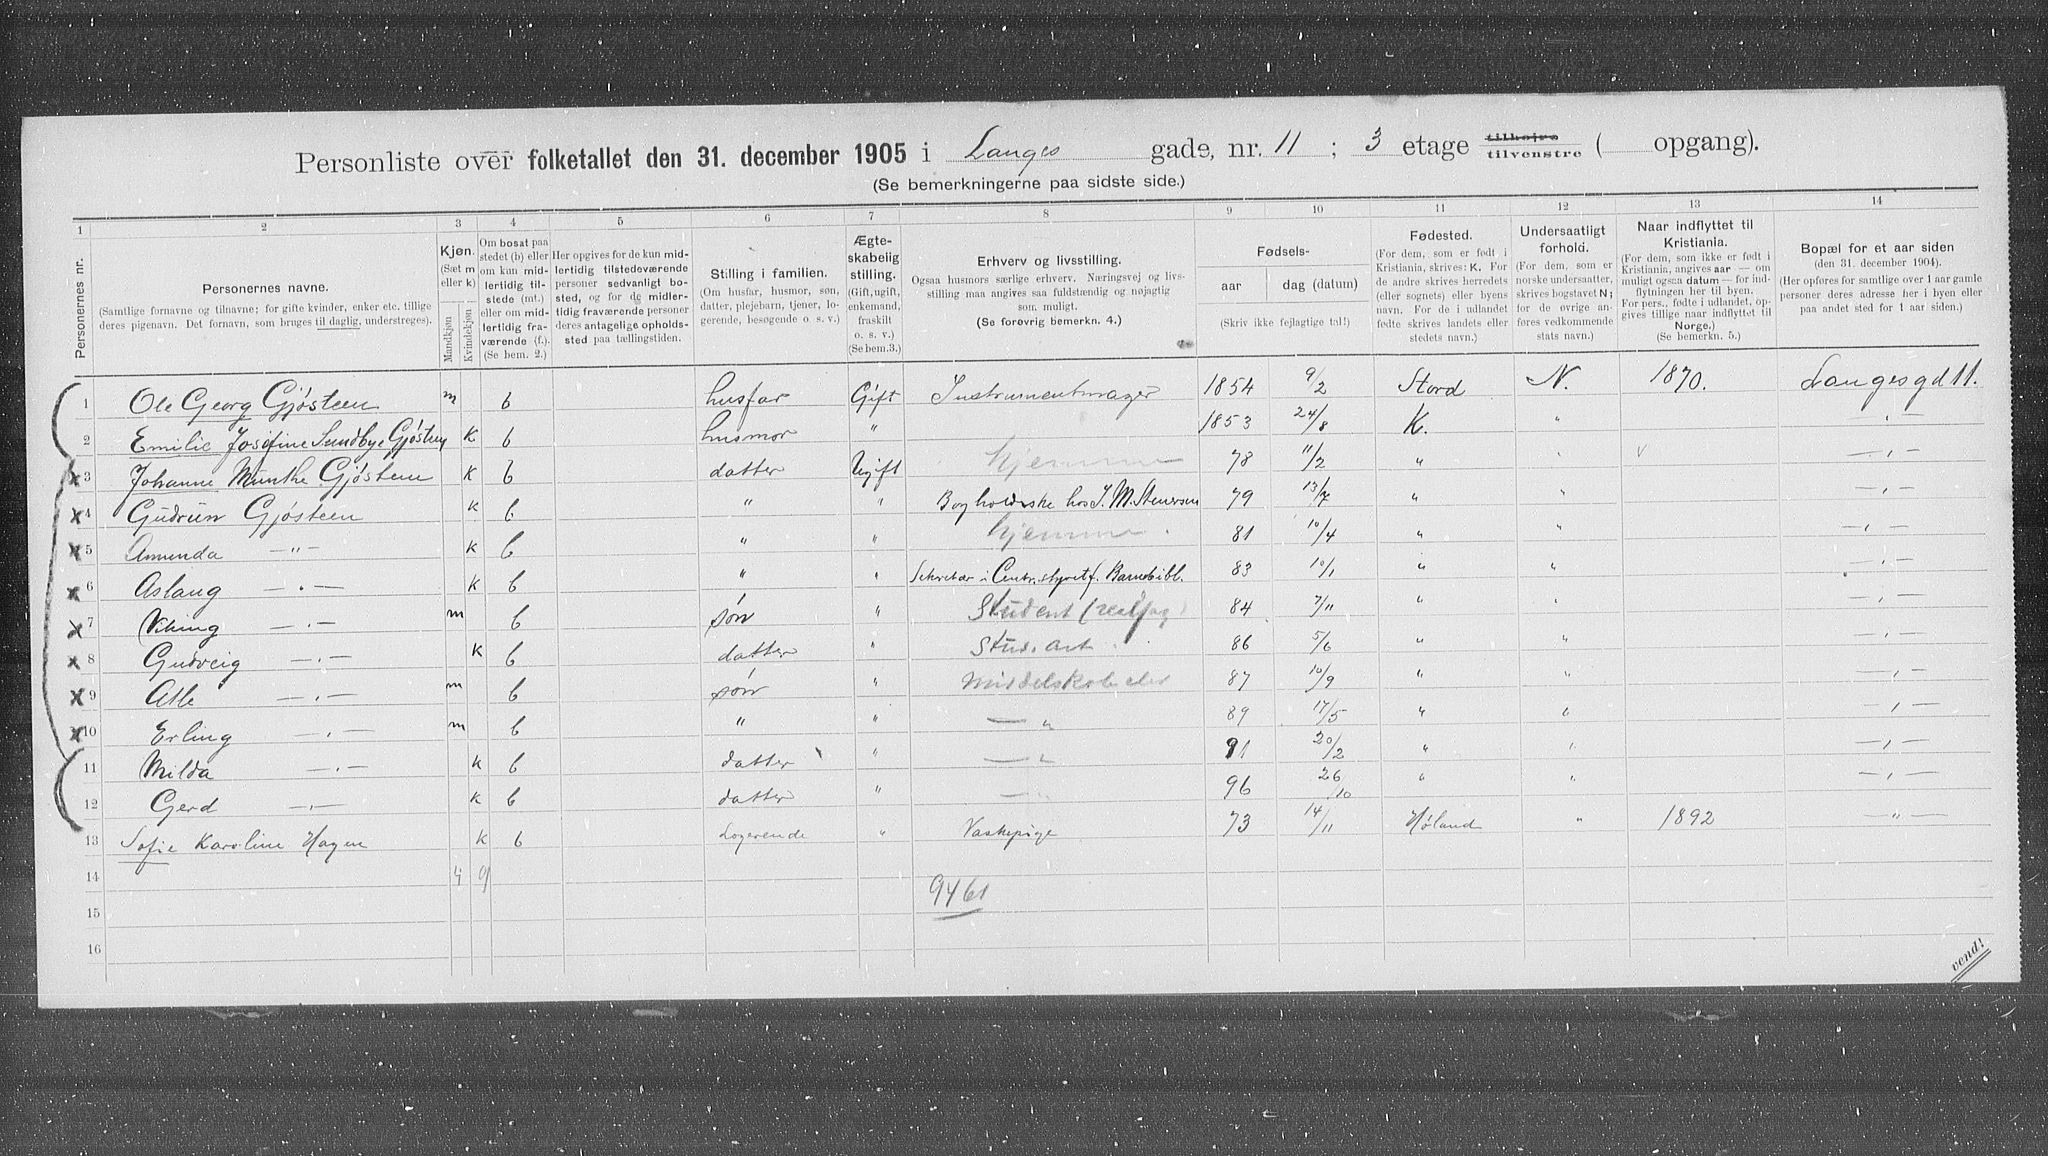 Personliste over folketallet den 31. december 1905 i Langes gade, nr. 11 ; 3 etage tilhøjre tilvenstre ( opgang).
(Se bemerkningerne paa sidste side.)
1 2 3 4 5 6 7 8 9 10 11 12 13 14
Personernes nr.
Personernes navne.
(Samtlige fornavne og tilnavne; for gifte kvinder, enker etc. tillige deres pigenavn. Det fornavn, som bruges til daglig, understreges).
Kjøn.
(Sæt m eller k)
Mandkjøn
Kvindekjøn
Om bosat paa stedet (b) eller om kun midlertidig tilstede (mt.) eller om midlertidig fraværende (f.). (Se bem. 2.)
Her opgives for de kun midlertidig tilstedeværende personer sedvanligt bosted, og for de midlertidig fraværende personer deres antagelige opholdssted paa tællingstiden.
Stilling i familien.
(Om husfar, husmor, søn, datter, plejebarn, tjener, logerende, besøgende o. s. v.)
Ægteskabelig stilling.
(Gift, ugift, enkemand, fraskilt o. s. v.) (Se bem. 3.)
Erhverv og livsstilling.
Ogsaa husmors særlige erhverv. Næringsvej og livsstilling maa angives saa fuldstændig og nøjagtig som muligt.
(Se forøvrig bemerkn. 4.)
Fødsels-
aar
dag (datum)
(Skriv ikke fejlagtige tal!)
Fødested.
(For dem, som er født i Kristiania, skrives: K. For de andre skrives herredets (eller sognets) eller byens navn. For de i udlandet fødte skrives landets eller stedets navn.)
Undersaatligt forhold.
(For dem, som er norske undersaatter, skrives bogstavet N; for de øvrige anføres vedkommende stats navn.)
Naar indflyttet til Kristiania.
(For dem, som ikke er født i Kristiania, angives aar — om muligt ogsaa datum — for indflytningen her til byen. For pers., fødte i udlandet, opgives tillige naar indflyttet til Norge.)
(Se bemerkn. 5.)
Bopæl for et aar siden
(den 31. december 1904).
(Her opføres for samtlige over 1 aar gamle personer deres adresse her i byen eller paa andet sted for 1 aar siden.)
1 Ole Georg Gjøsteen m b husfar Gift Instrumentmager 1854 9/2 Stord N. 1870. Langesgd 11.
2 Emilie Josefine Sundbye Gjøsteen k b husmor " 1853 24/8 K. " — " —
x 3 Johanne Munthe Gjøsteen k b datter Ugift hjemme 78 11/2 " " v — " —
x 4 Gudrun Gjøsteen k b " " Bogholderske hos J. M. Stenersen 79 13/7 " " — " —
x 5 Amunda — " — k b " " hjemme. 81 10/4 " " — " —
x 6 Aslaug — " — k b " " Sekretær i Centr.styret f. Barnebibl. 83 10/1 " " — " —
x 7 Viking — " — m b søn " Student (realfag) 84 7/11 " " — " —
x 8 Gudveig — " — k b datter " Stud. art. 86 5/6 " " — " —
x 9 Atle — " — m b søn " Middelskoleelev 87 10/9 " " — " —
x 10 Erling — " — m b " " — " 89 17/5 " " — " —
11 Milda — " — k b datter " — " 91 20/2 " " — " —
12 Gerd — " — k b datter " — " 96 26/10 " " — " —
13 Sofie Karoline Hagen k b Logerende " Vaskepige 73 14/11 Høland " 1892 — " —
14 4 9 9461
15
16
vend!